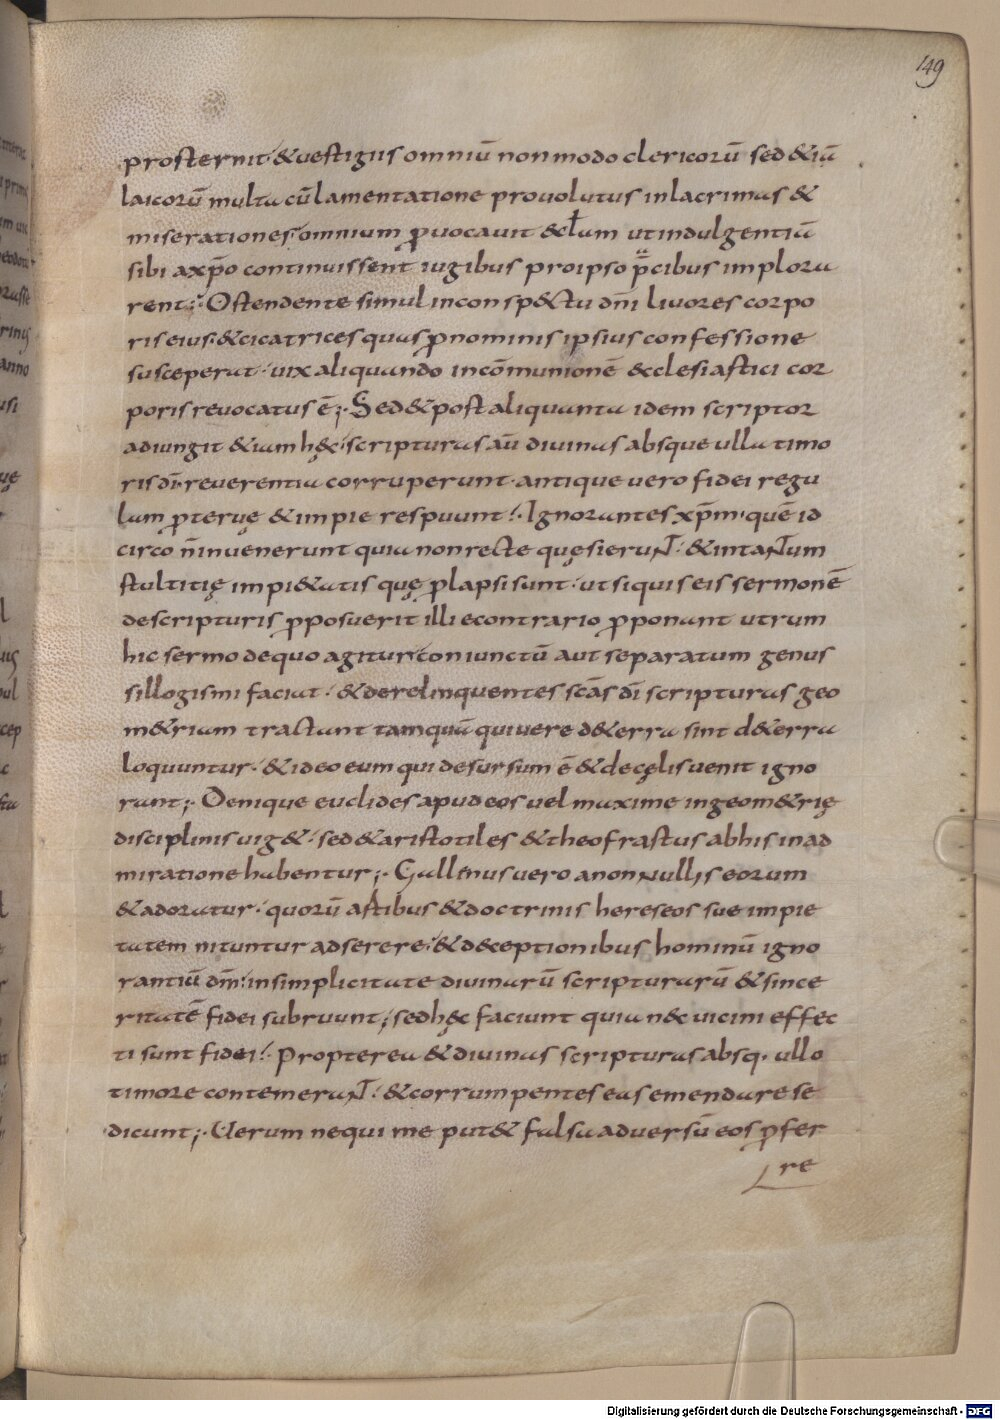 149
prosternit & uestigiis omniū non modo clericorū sed & iā
laicorū multa cū lamentatione prouolutus in lacrimas &
miserationes omnium ꝓuocauit & łam ut indulgentiā
sibi a xp̄o continuis sent iugibus pro ipso p̄cibus implora
rent; Ostendente simul in conspectu dn̄i liuores corpo
ris eius & cicatrices quas ꝓ nominis ipsius confessione
susceperat · uix aliquando in cōmunionē & clesiastici cor
poris reuocatus ē; Sed & post aliquanta idem scriptor
adiungit & iam hęc scripturas aū diuinas absque ulla timo
ris dī reuerentia corruperunt · antique uero fidei regu
lam ꝓteruę & impie respuunt · Ignorantes xp̄m · quē id
circo n̄ inuenerunt quia non recte quęsierunt · & in tantum
stultitię impietatis quę ꝓlapsi sunt · ut si quis eis sermonē
de scripturis ꝓposuerit illi econtrario ꝓponant utrum
hic sermo de quo agitur coniunctū aut separatum genus
sillogismi faciat · & derelinquentes scās dī scripturas geo
m&riam tractant tamquā qui uere d& erra sint d& erra
loquuntur · & ideo eum qui desursum ē & de cęlis uenit igno
rant; Denique euclides apud eos uel maxime in geom&rię
disciplinis uig& · sed & aristotiles & theofrastus ab his in ad
miratione habentur; Gallenus uero a non nullis eorum
& adoratur · quorū astibus & doctrinis hereseos sue impie
tatem nituntur adserere · & deceptionibus hominū igno
rantiū dm̄ · in simplicitate diuinarū scripturarū & since
ritatē fidei subruunt; sed hęc faciunt quia nec uicini effec
ti sunt fidei · Propterea & diuinas scripturas absq· ullo
timore contemerant · & corrumpentes eas emendare se
dicunt; Uerum ne qui me put& falsa aduersū eos ꝓfer
re
Digitalisierung gefördert durch die Deutsche Forschungsgemeinschaft - DFG